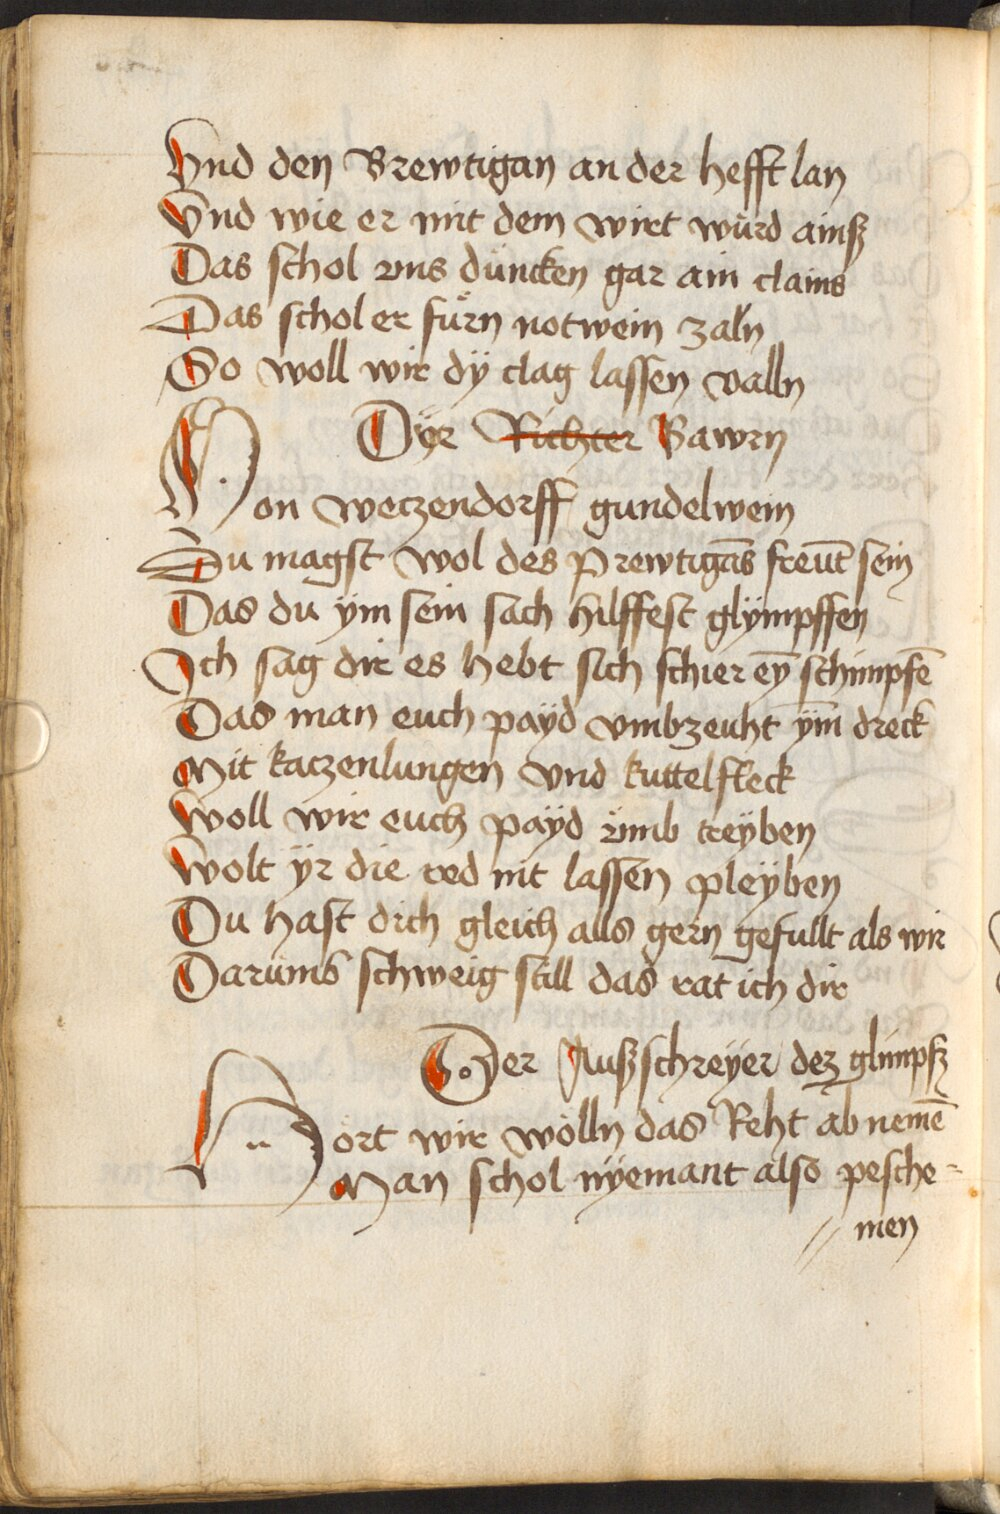 Vnd den Brewtigan an der hefft lan
Vnd wie er mit dem wirt würd ainß
Das schol vns düncken gar ain clains
Das schol er fürn notwein zaln
So woll wir dÿ clag lassen valln
Dÿe Richter Bawrn
Von weczendorff gundelwein
Du magst wol des prewtigās freūt sein
Das du ÿm sein sach hilffest glÿmpffen
Ich sag dir es hebt sich schier eȳ schimpfē
Das man euch paÿd vmbzeuht ÿm dreck
Mit kaczenlungen vnd kuttelfleck
Woll wir euch paÿd vmb treÿben
Wolt ÿr die red nit lassen pleÿben
Du hast dich gleich alls gern gefullt als wir
Darumb schweig still das rat ich dir
Der Außschreÿer dez glimpfz
Hort wir wölln das Reht ab nemē
Man schol nÿemant also pesche=
men